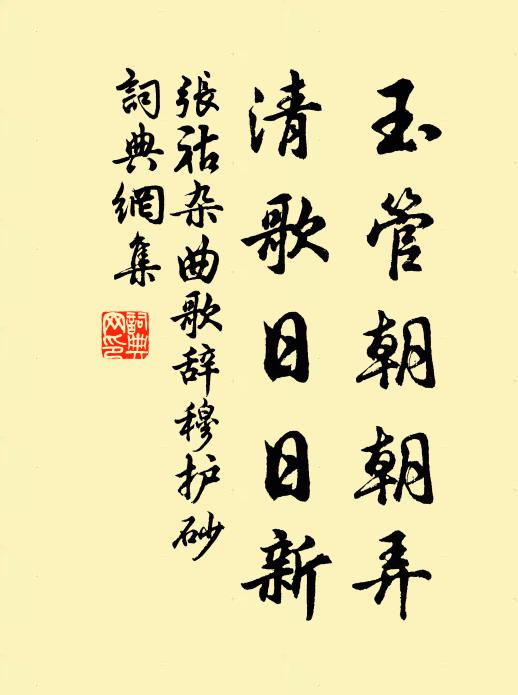 玉管朝朝弄
清歌日日新
張祜杂曲歌辞穆护砂
詞典網集
詞典
网印